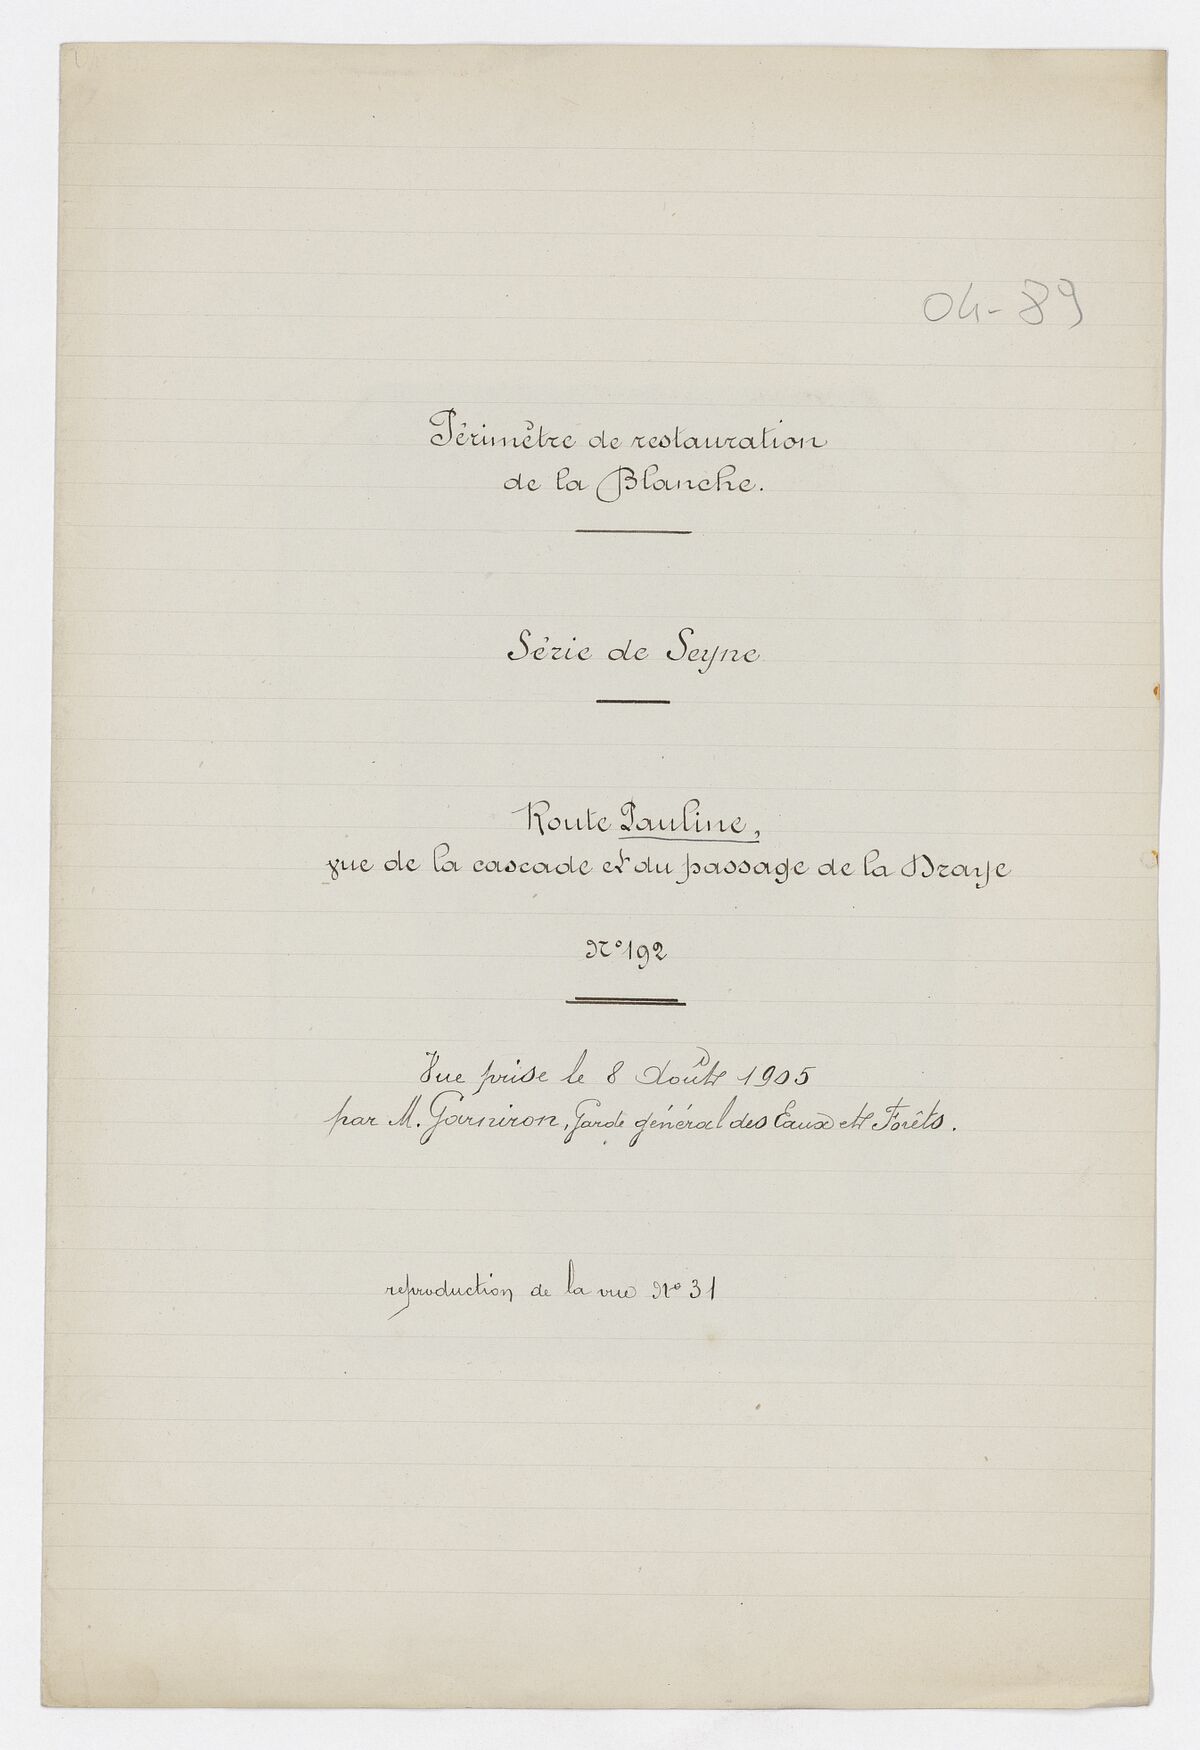 04-89
Périmètre de restauration
de la Blanche.
Série de Seyne
Route Pauline,
vue de la cascade et du passage de la Draye
N° 192
Vue prise le 8 Août 1905
par M. Garniron, Garde général des Eaux et Forêts.
reproduction de la vue N° 31